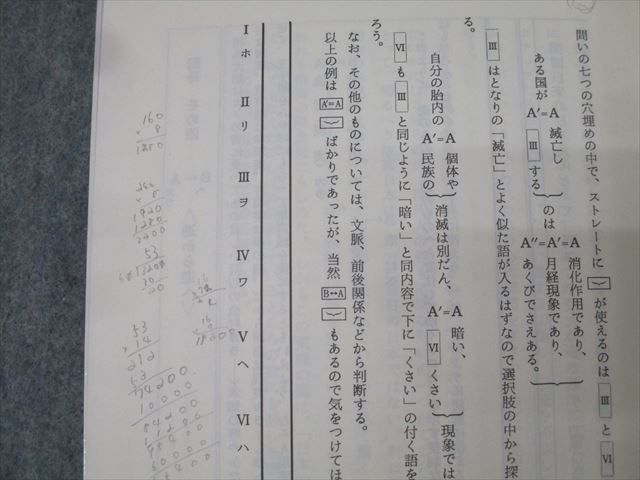 問いの七つの穴埋めの中で、ストレートに ︸ が使えるのは Ⅲ と Ⅵ
ある国が A'=A 滅亡し Ⅲ する のは A''=A'=A 消化作用であり、月経現象であり、あくびでさえある。
Ⅲ はとなりの「滅亡」とよく似た語が入るはずなので選択肢の中から探
る。
自分の胎内の A'=A 個体や 民族の 消滅は別だん、A'=A 暗い、 Ⅵ くさい 現象では
Ⅵ も Ⅲ と同じように「暗い」と同内容で下に「くさい」の付く語を
ろう。
なお、その他のものについては、文脈、前後関係などから判断する。
以上の例は A'=A ︸ ばかりであったが、当然 B↔A ︸ もあるので気をつけてほ
Ⅰ ホ Ⅱ リ Ⅲ ヲ Ⅳ ワ Ⅴ ヘ Ⅵ ハ
160
53
53
14
212
53